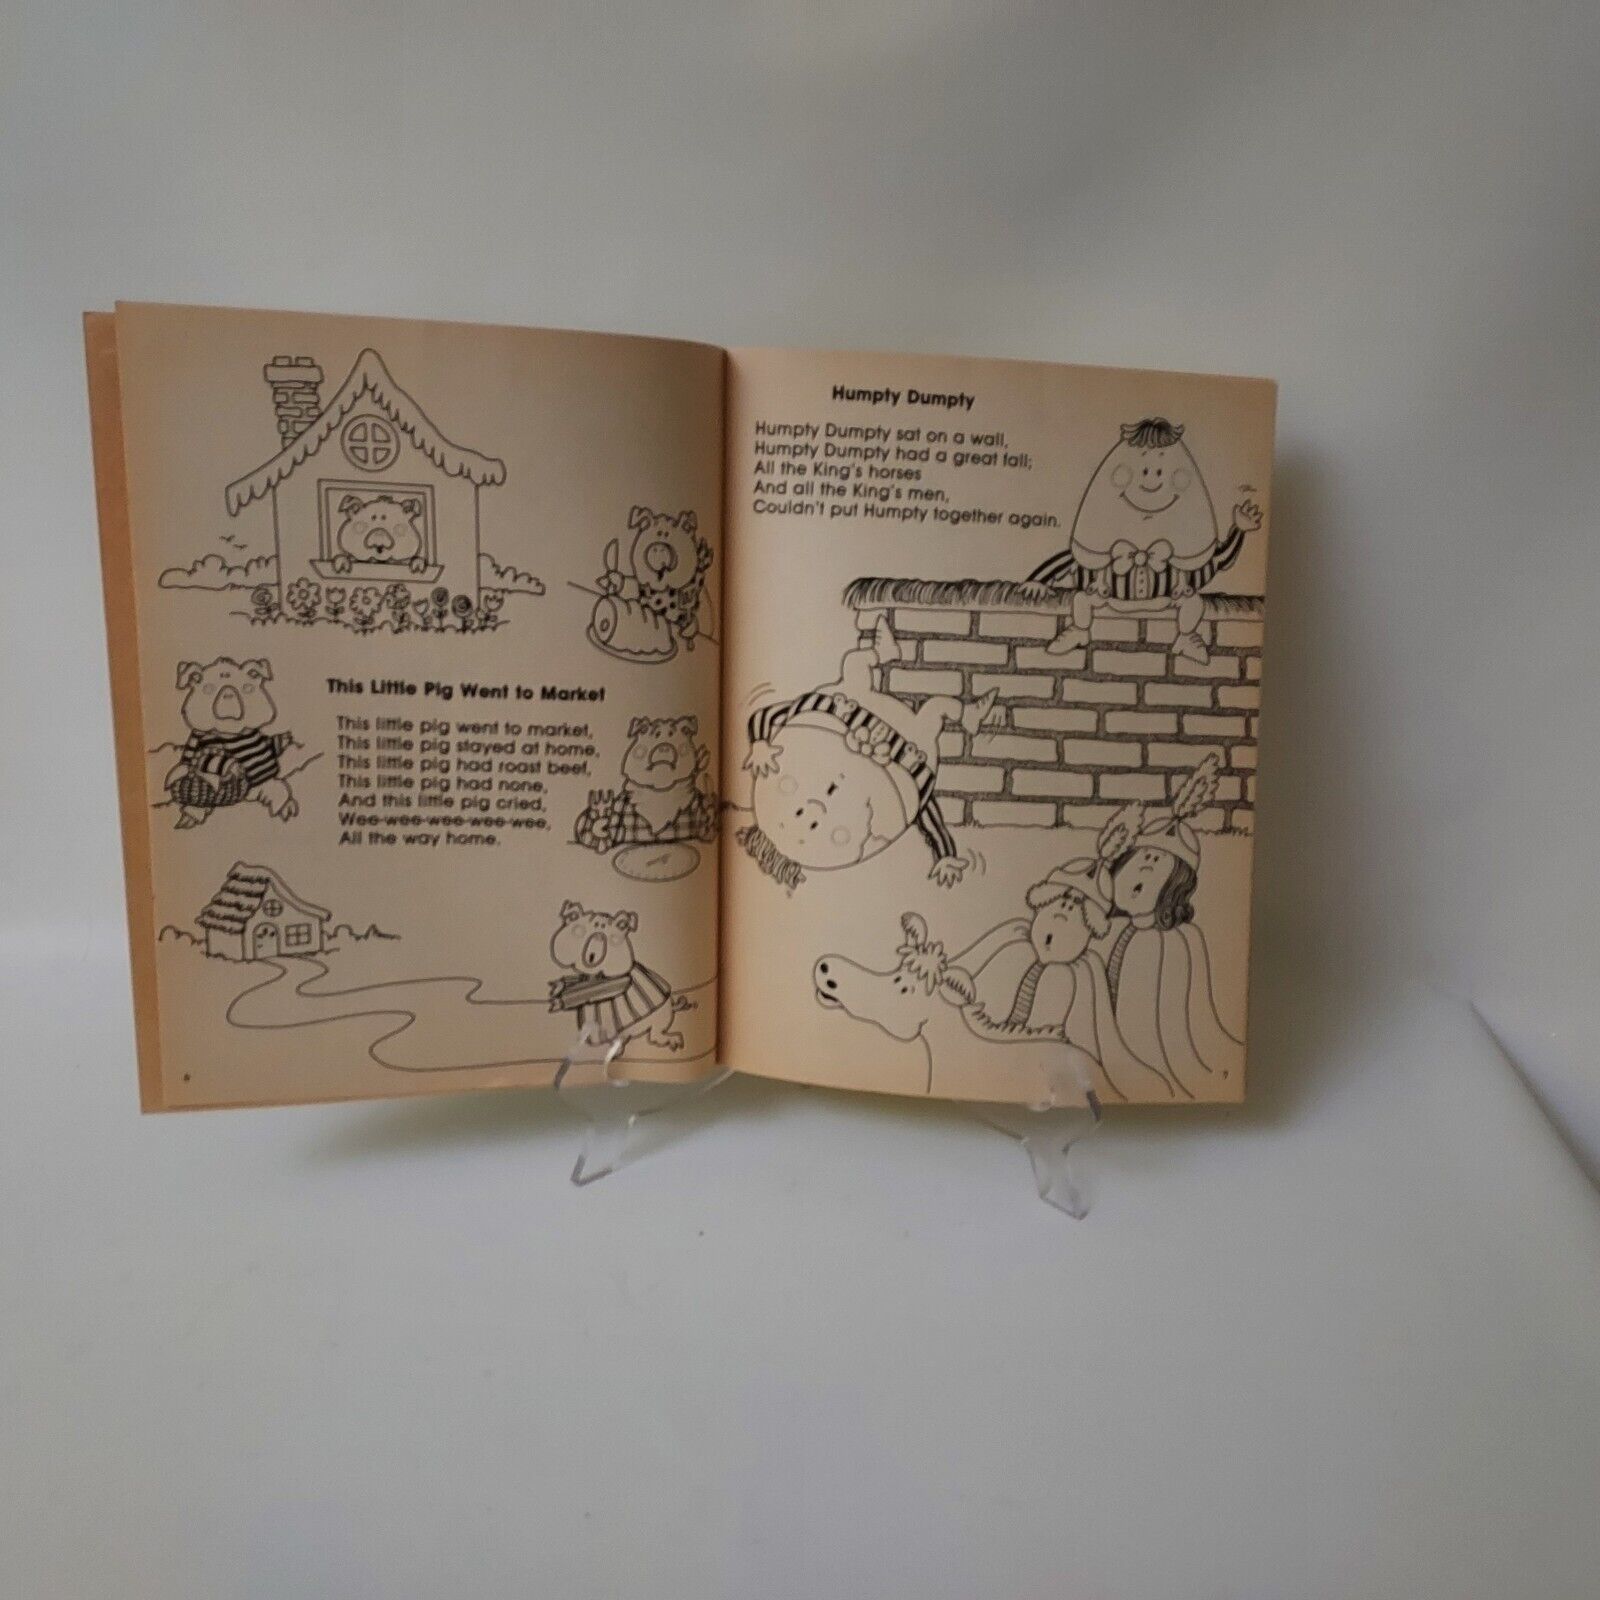 This Little Pig Went to Market
This little pig went to market,
This little pig stayed at home,
This little pig had roast beef,
This little pig had none,
And this little pig cried,
Wee-wee-wee-wee-wee,
All the way home.
6
Humpty Dumpty
Humpty Dumpty sat on a wall,
Humpty Dumpty had a great fall;
All the King's horses
And all the King's men,
Couldn't put Humpty together again.
7